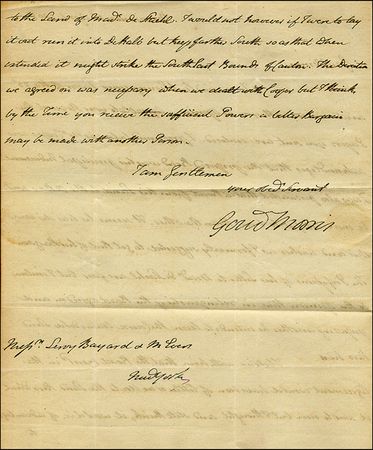 to the Land of Mad.e De Staehl. I would not however if I were to lay
it out run it into De Kalb but keep further South so as that when
extended it might strike the South East Bounds of Canton. The Direction
we agreed on was necessary when we dealt with Cooper but I think,
by the Time you receive the sufficient Powers a better Bargain
may be made with another Person.
I am Gentlemen
your obed. Servant
Gouv Morris
Mess.rs Leroy Bayard & McEvers
New York